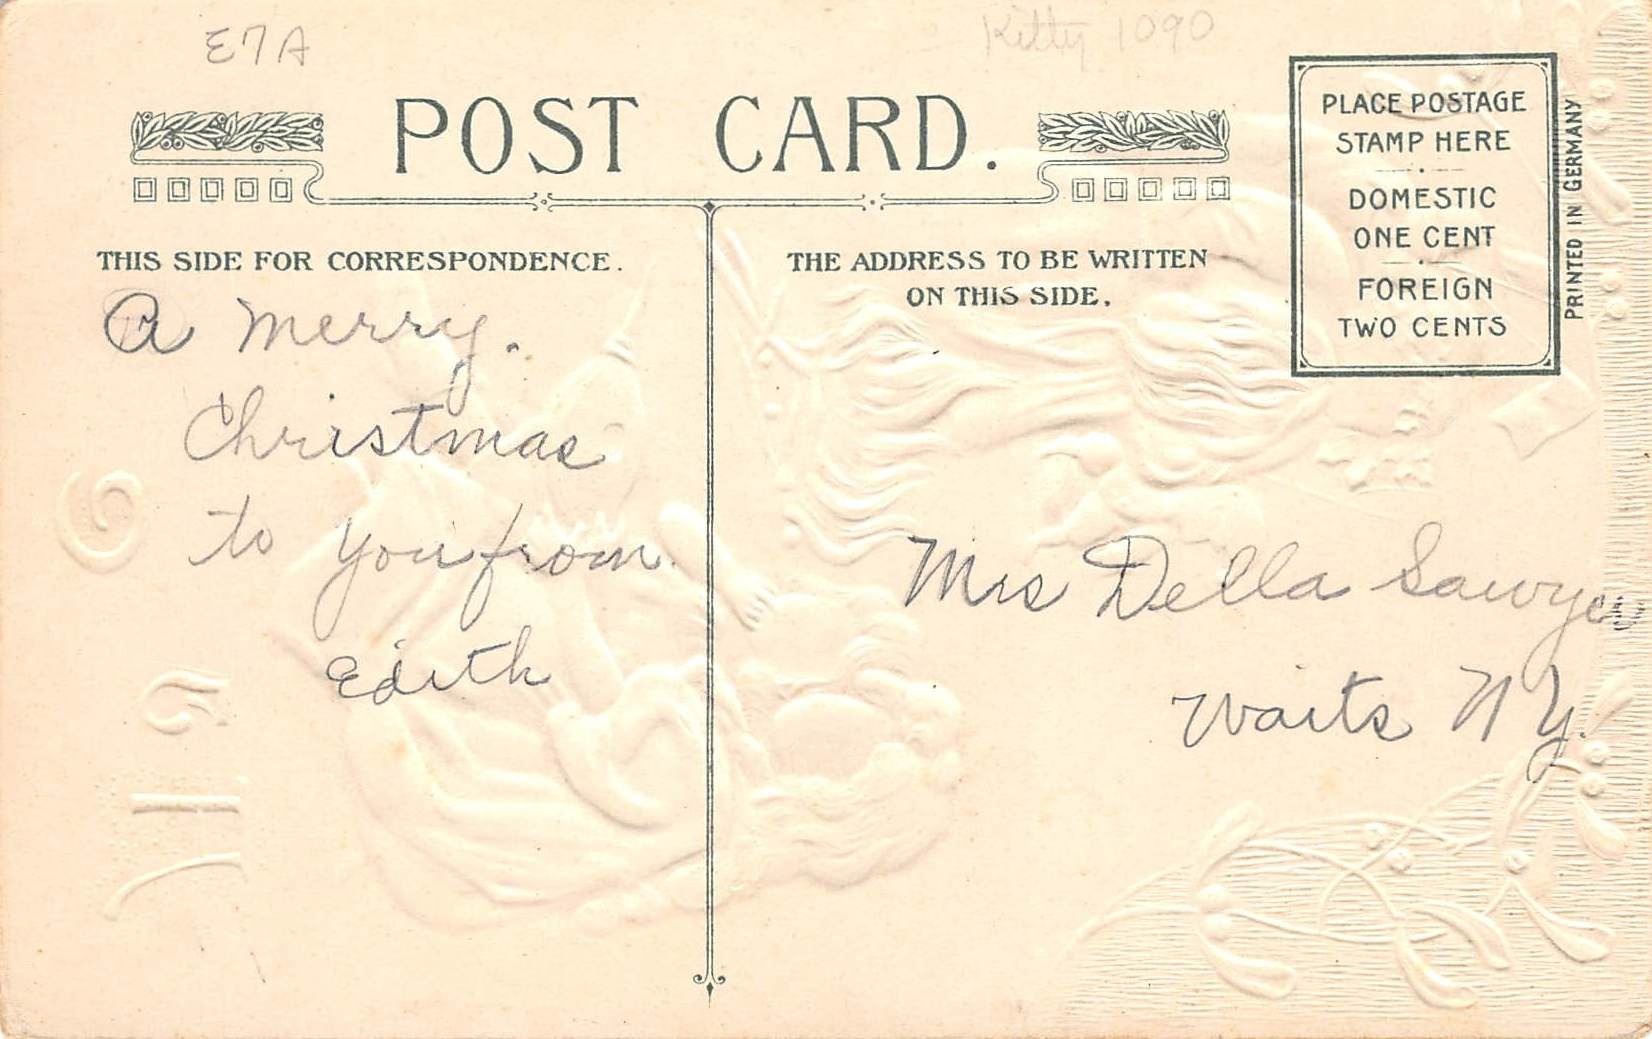 E7A
Kitty 1090
POST CARD.
PLACE POSTAGE
STAMP HERE
DOMESTIC
ONE CENT
FOREIGN
TWO CENTS
PRINTED IN GERMANY
THIS SIDE FOR CORRESPONDENCE.
THE ADDRESS TO BE WRITTEN
ON THIS SIDE.
A Merry.
Christmas
to you from
Edith
Mrs Della Sawyer
Waits N Y.